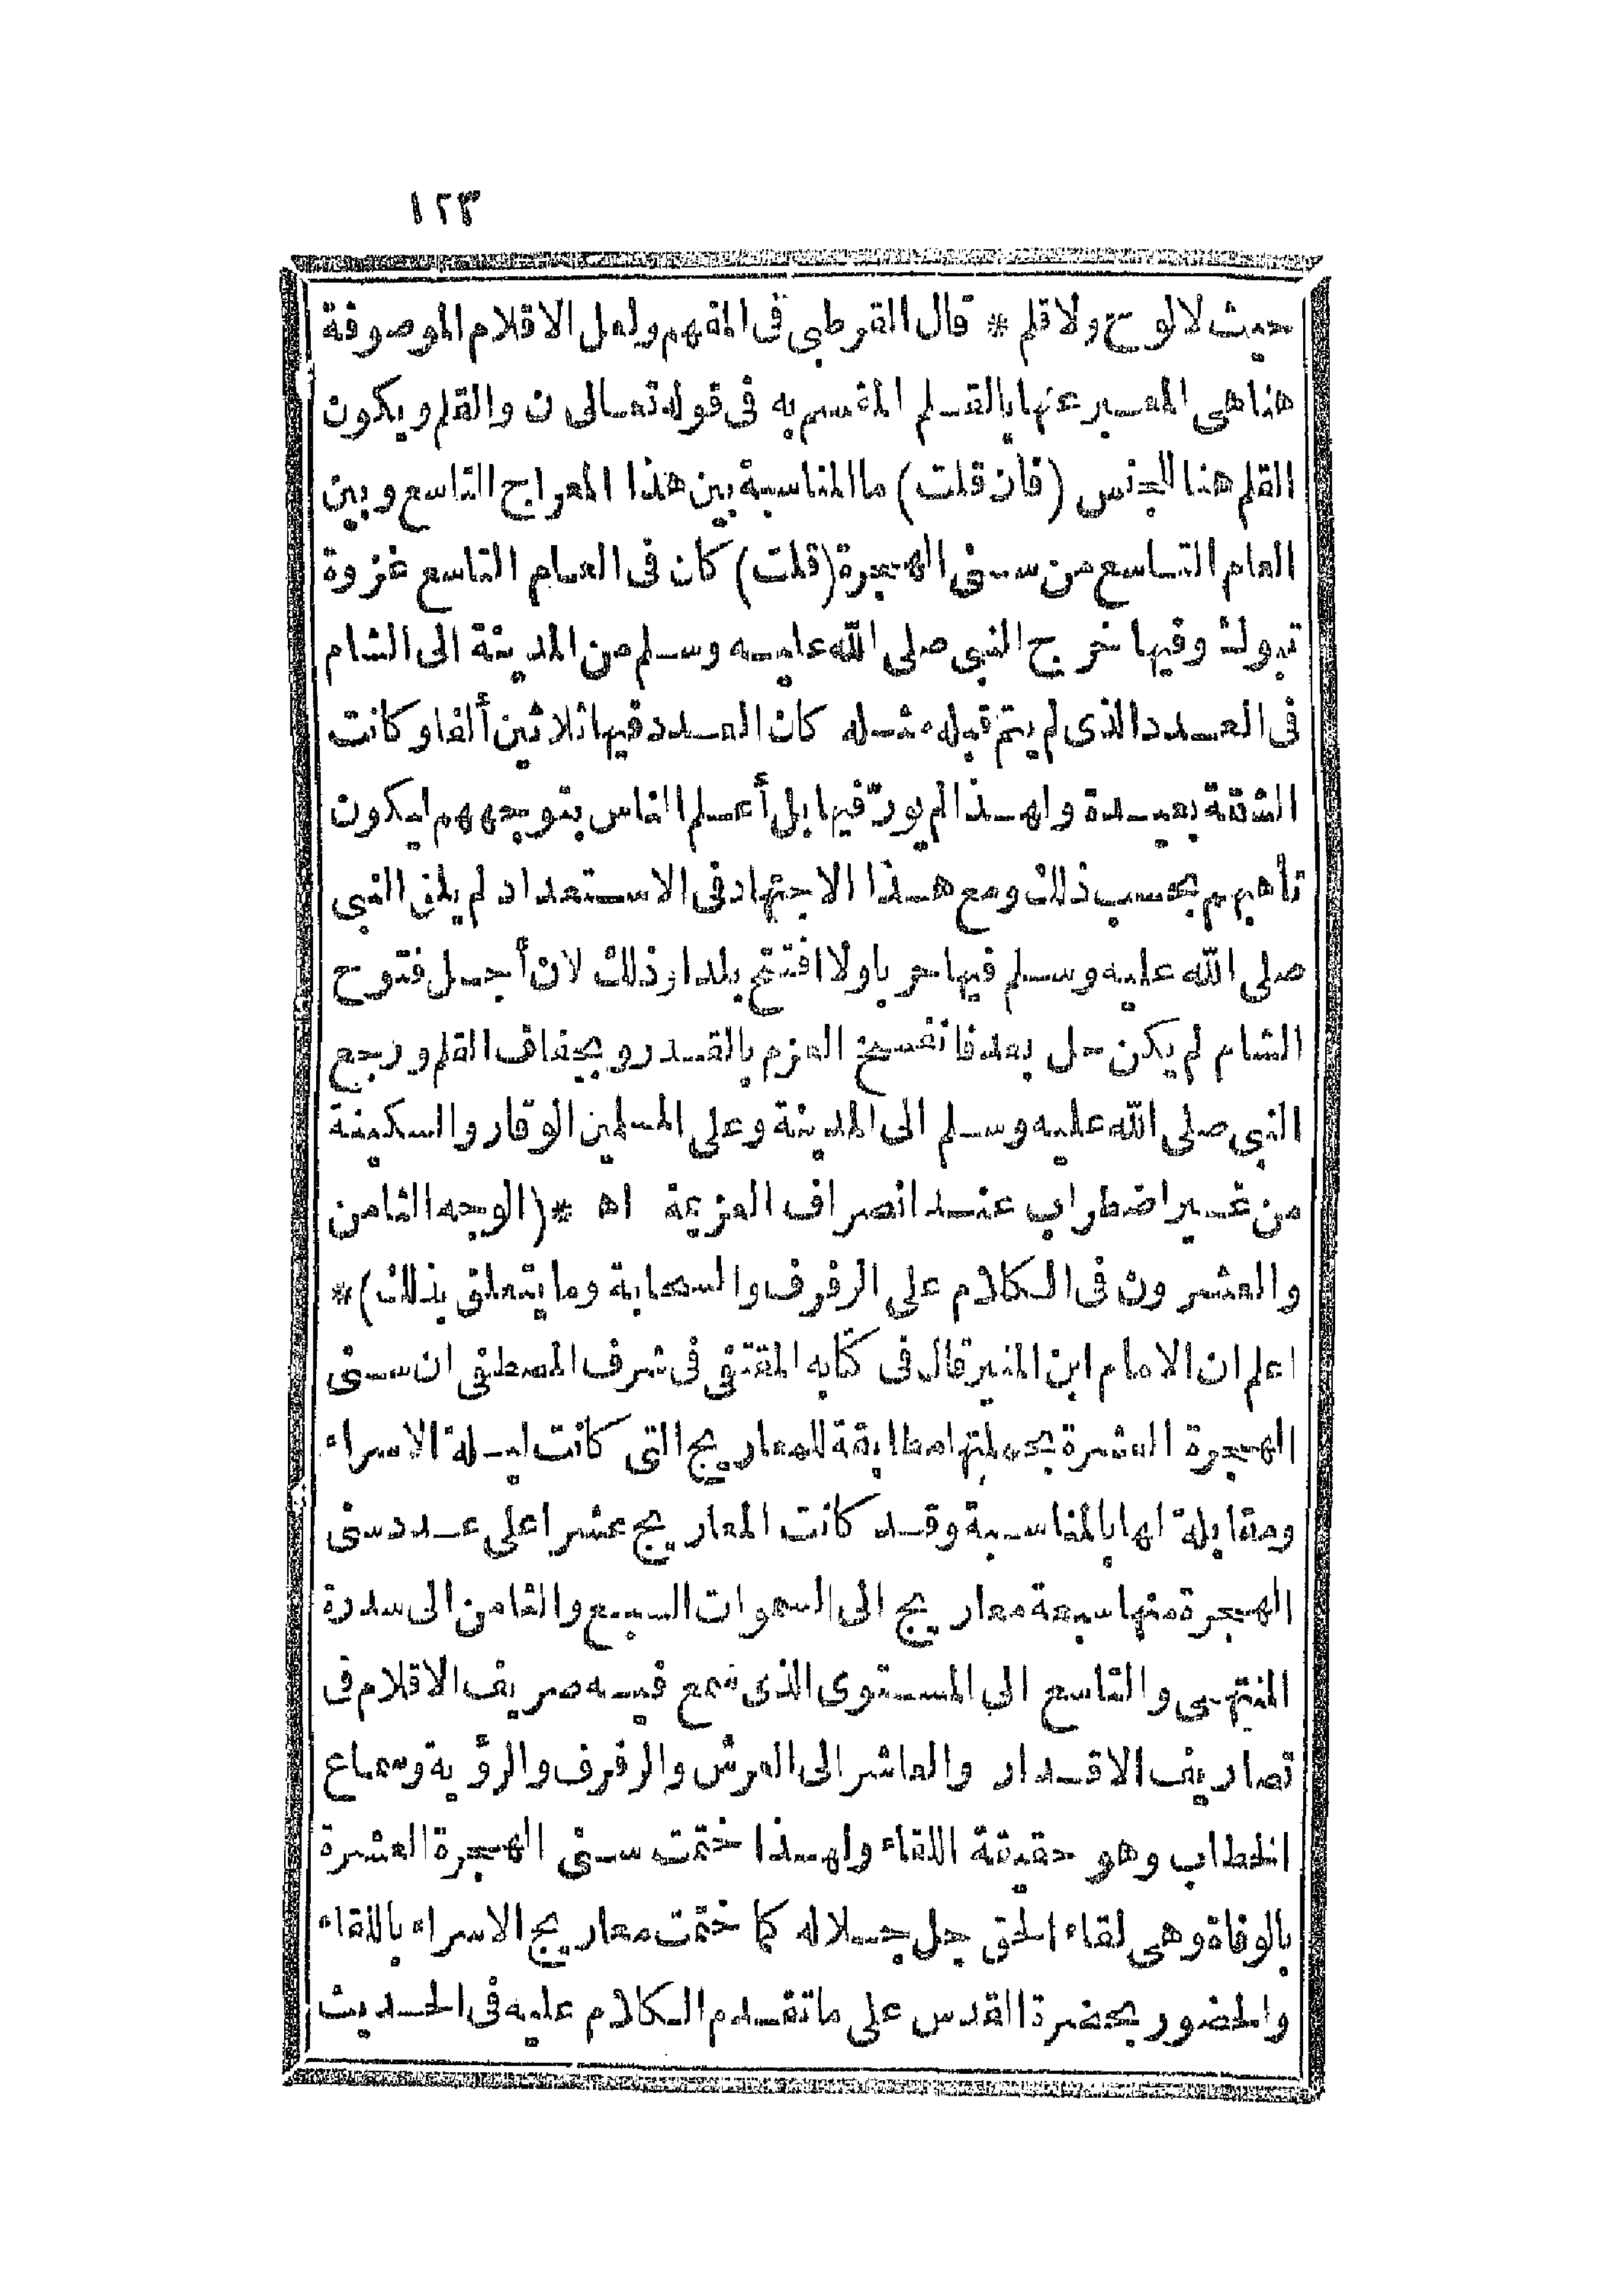 ١٢٣
حيث لا لوح ولا قلم * قال القرطبى فى المفهم ولعل الاقلام الموصوفة
هنا هى المعبر عنها بالقلم المقسم به فى قوله تعالى ن والقلم ويكون
القلم هنا للجنس (فان قلت) ما المناسبة بين هذا المعراج التاسع وبين
العام التاسع من سنى الهجرة (قلت) كان فى العام التاسع غزوة
تبوك وفيها خرج النبى صلى الله عليه وسلم من المدينة الى الشام
فى العدد الذى لم يتم قبله مثله كان العدد فيها ثلاثين ألفا وكانت
الشقة بعيدة ولهذا لم يورّ فيها بل أعلم الناس بتوجههم ليكون
تأهبهم بحسب ذلك ومع هذا الاجتهاد فى الاستعداد لم يلق النبى
صلى الله عليه وسلم فيها حربا ولا افتتح بلدا وذلك لان أجل فتوح
الشام لم يكن حل بعد فانفسخ العزم بالقدر وبجفاف القلم ورجع
النبى صلى الله عليه وسلم الى المدينة وعلى المسلمين الوقار والسكينة
من غير اضطراب عند انصراف العزيمة اه *(الوجه الثامن
والعشرون فى الكلام على الرفرف والسحابة وما يتعلق بذلك)*
اعلم ان الامام ابن المنير قال فى كتابه المقتفى فى شرف المصطفى ان سنى
الهجرة العشرة بجملتها مطابقة للمعاريج التى كانت ليلة الاسراء
ومقابلة لها بالمناسبة وقد كانت المعاريج عشرا على عدد سنى
الهجرة منها سبعة معاريج الى السموات السبع والثامن الى سدرة
المنتهى والتاسع الى المستوى الذى سمع فيه صريف الاقلام فى
تصاريف الاقدار والعاشر الى العرش والرفرف والرؤية وسماع
الخطاب وهو حقيقة اللقاء ولهذا ختمت سنى الهجرة العشرة
بالوفاة وهى لقاء الحق جل جلاله كما ختمت معاريج الاسراء باللقاء
والحضور بحضرة القدس على ما تقدم الكلام عليه فى الحديث